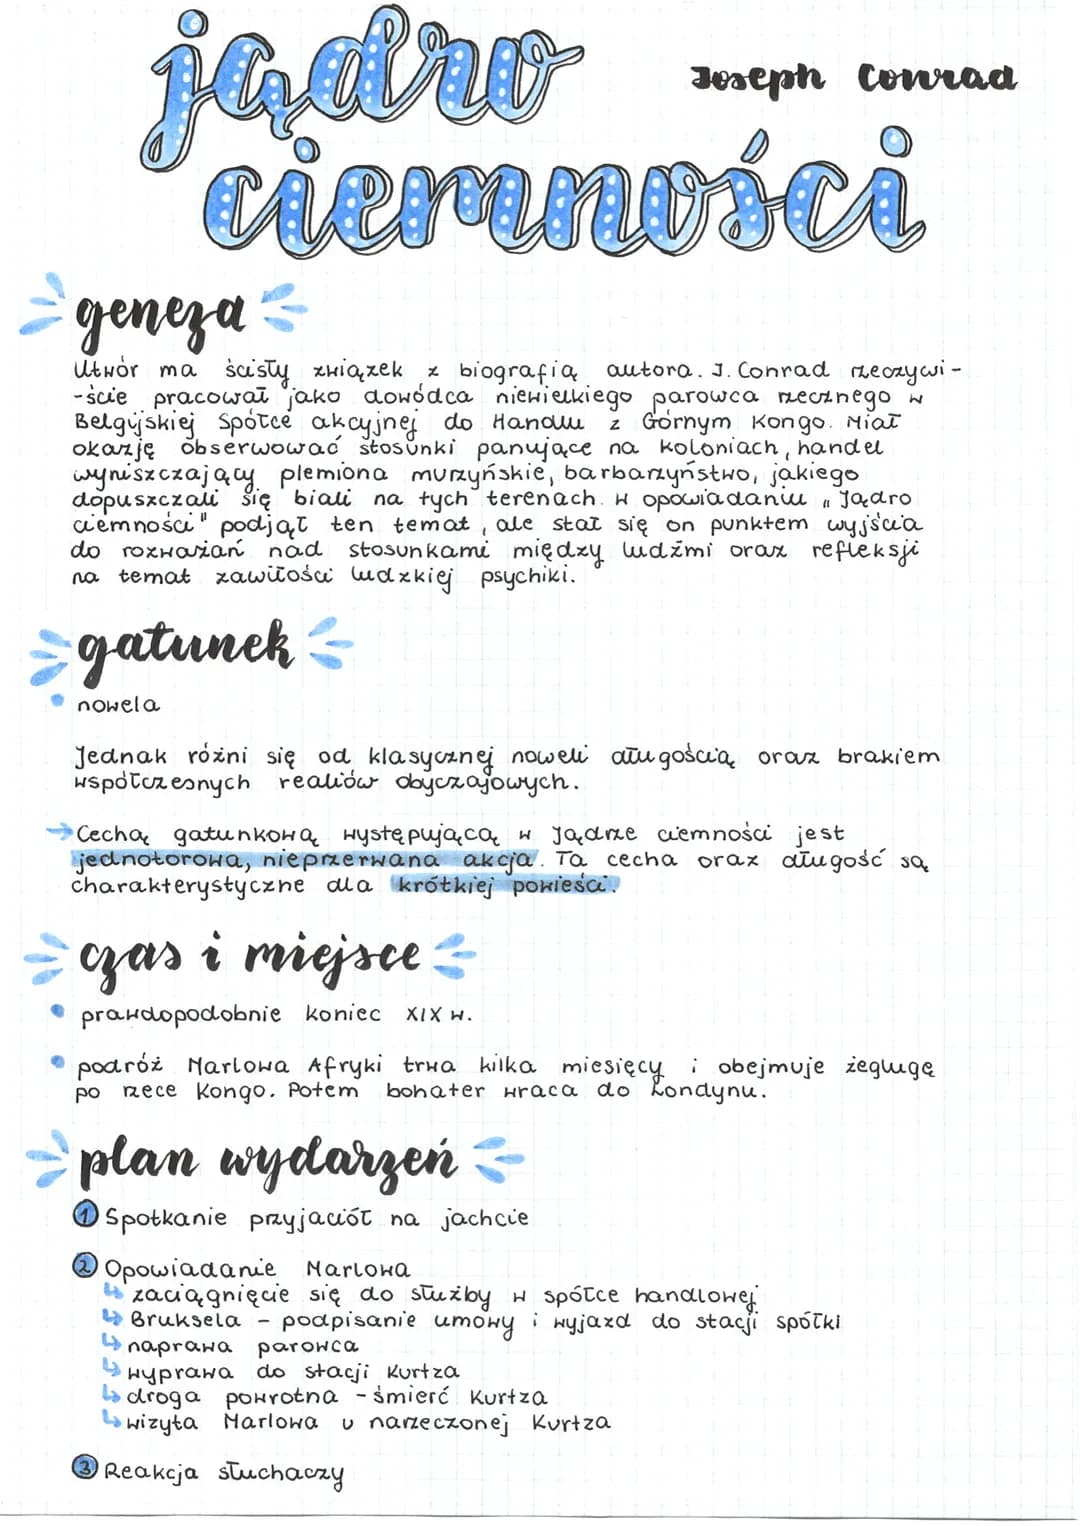 jądro
Joseph Conrad
ciemności
geneza
Utwór ma ścisły związek z biografią autora. J. Conrad rzeczywi-
-ście pracował jako dowódca niewielkiego parowca rzecznego w
Belgijskiej Spółce akcyjnej do Handlu z Górnym Kongo. Miał
okazję obserwować stosunki panujące na koloniach, handel
wyniszczający plemiona murzyńskie, barbarzyństwo, jakiego
dopuszczali się biali na tych terenach. W opowiadaniu „Jądro
ciemności" podjął ten temat, ale stał się on punktem wyjścia
do rozważań nad stosunkami między ludźmi oraz refleksji
na temat zawiłości ludzkiej psychiki.
gatunek
• nowela
Jednak różni się od klasycznej noweli długością oraz brakiem
współczesnych realiów obyczajowych.
→ Cechą gatunkową występującą w Jądrze ciemności jest
jednotorowa, nieprzerwana akcja. Ta cecha oraz długość są
charakterystyczne dla krótkiej powieści.
czas i miejsce
• prawdopodobnie koniec XIX w.
• podróż Marlowa Afryki trwa kilka miesięcy i obejmuje żeglugę
po rzece Kongo. Potem bohater wraca do Londynu.
plan wydarzeń
1 Spotkanie przyjaciół na jachcie
2 Opowiadanie Marlowa
↳ zaciągnięcie się do służby w spółce handlowej
↳ Bruksela - podpisanie umowy i wyjazd do stacji spółki
↳ naprawa parowca
↳ wyprawa do stacji Kurtza
↳ droga powrotna - śmierć Kurtza
↳ wizyta Marlowa u narzeczonej Kurtza
3 Reakcja słuchaczy